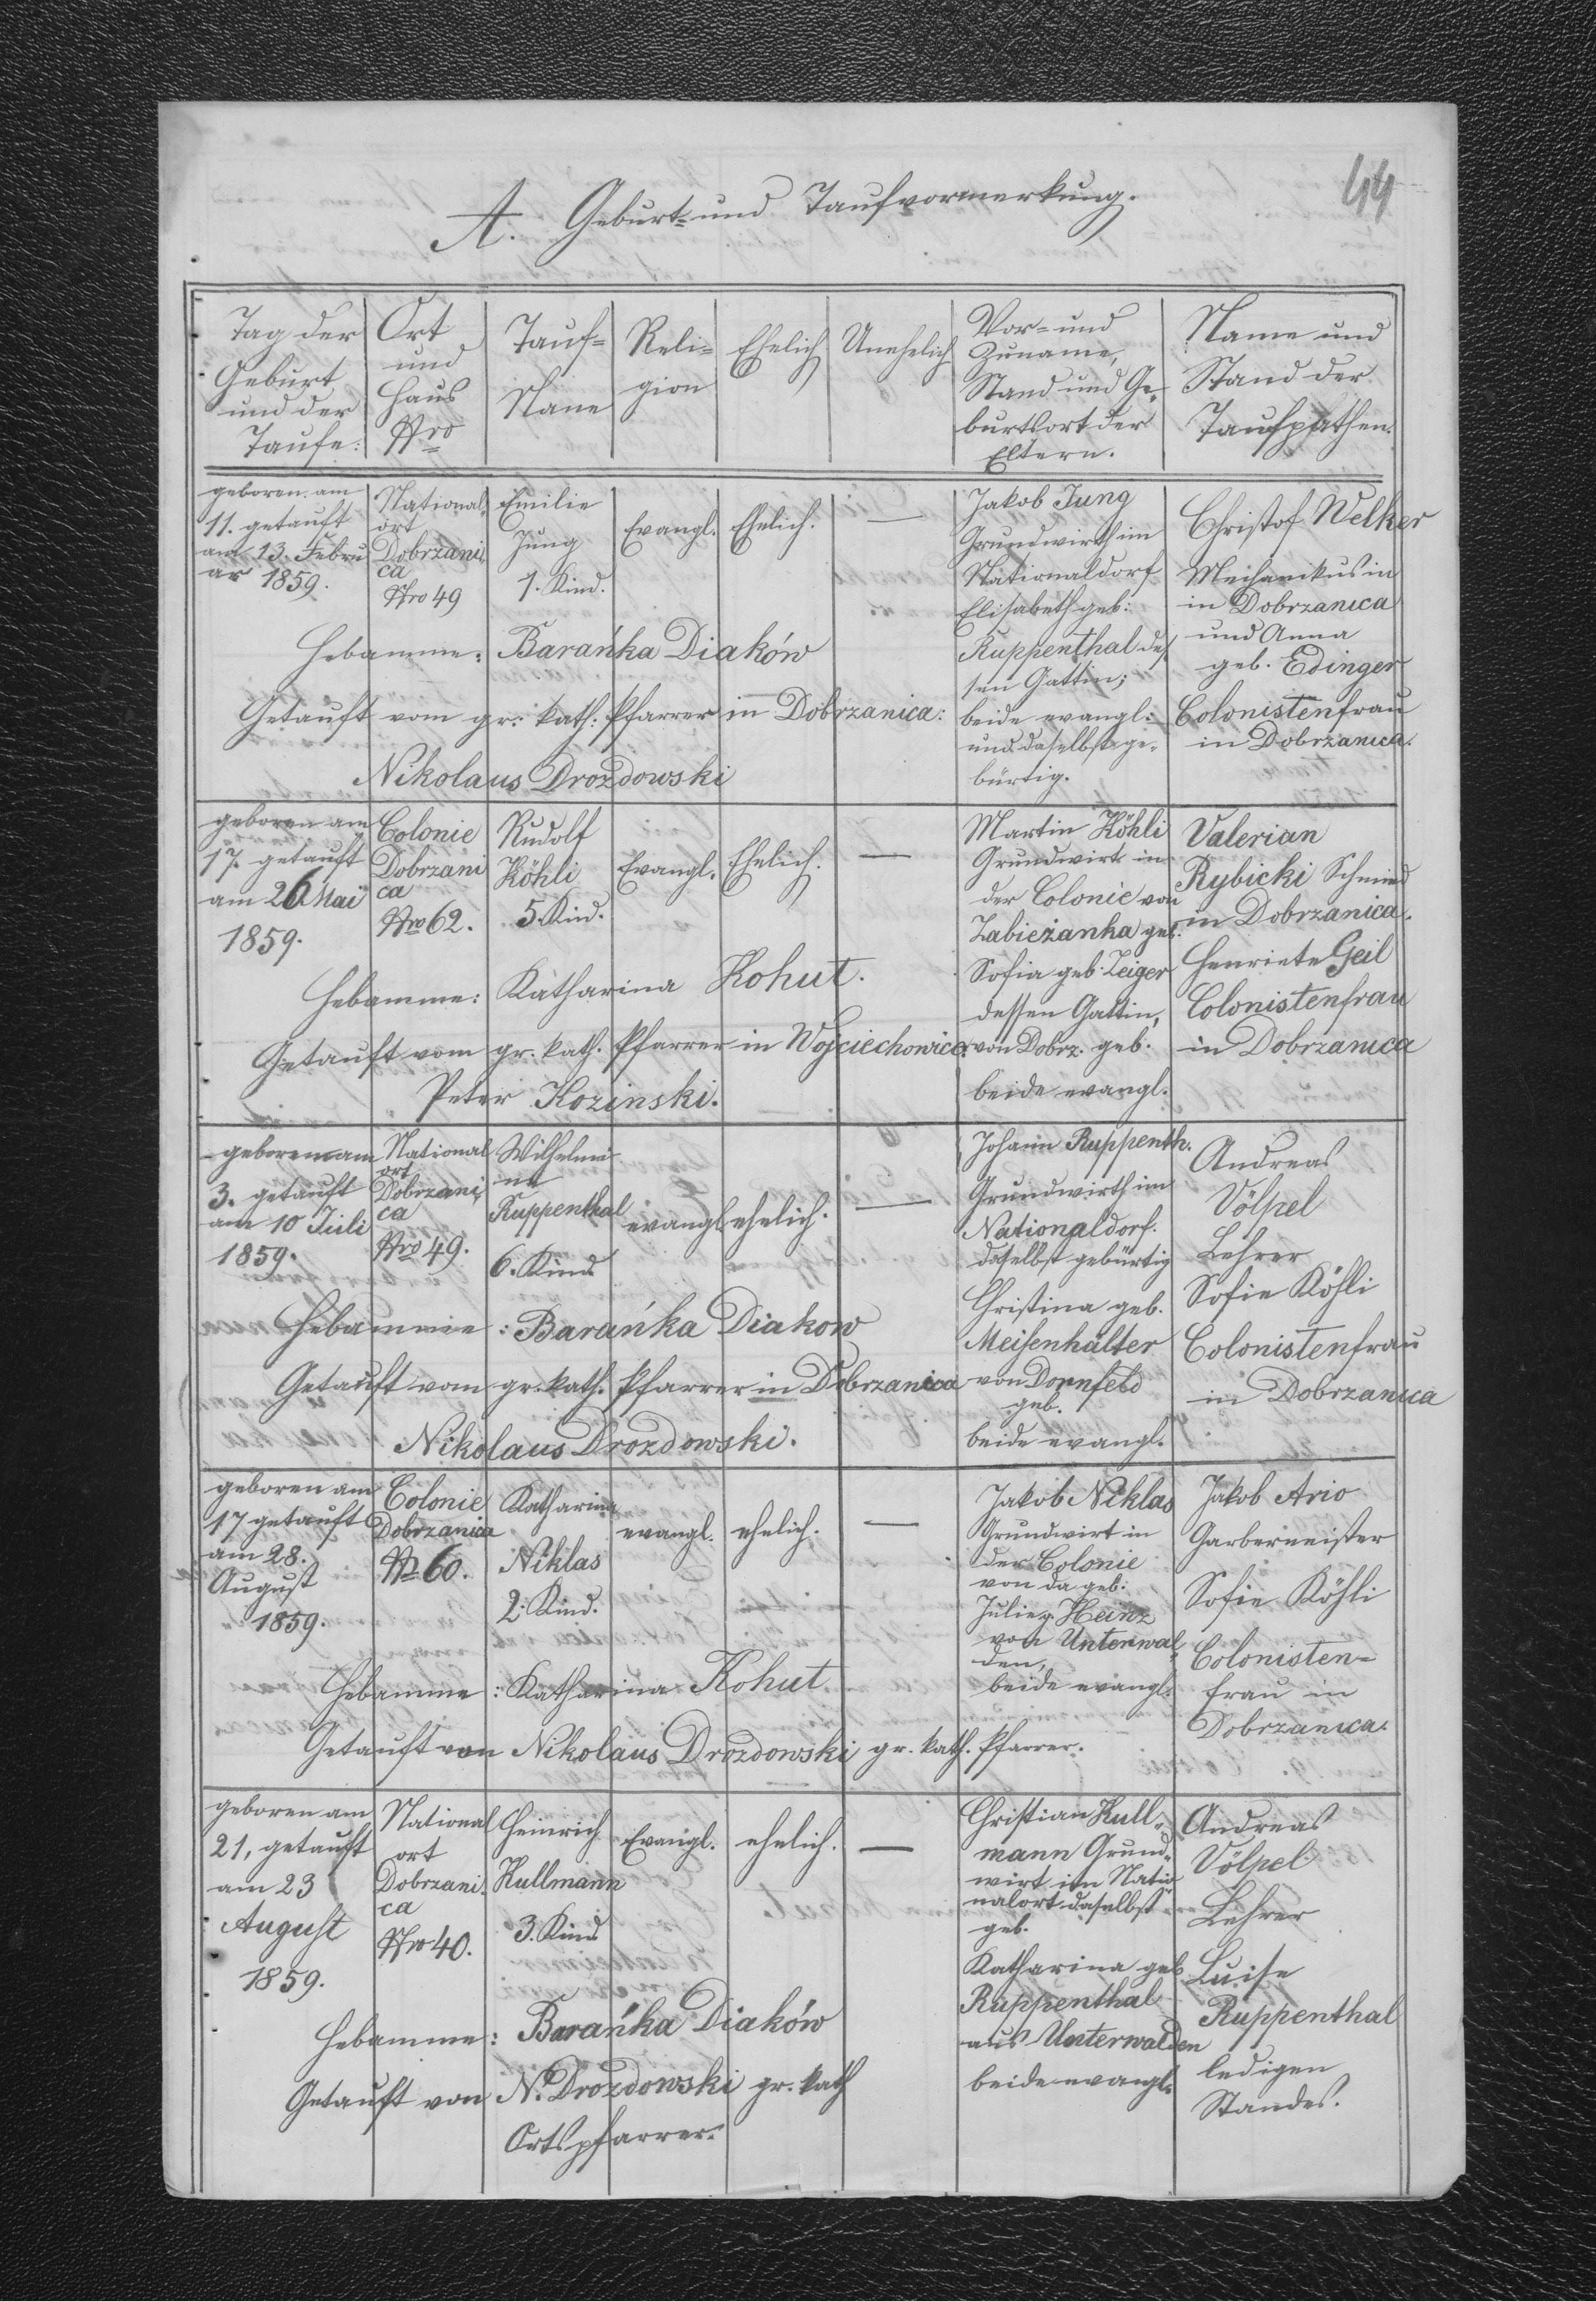 44
A. Geburt= und Taufvormerkung.
Tag der
Geburt
und der
Taufe:
Ort
und
Haus
Nro
Tauf=
Name
Reli=
gion
Ehelich
Unehelich
Vor= und
Zuname,
Stand und Ge=
burtsort der
Eltern.
Name und
Stand der
Taufpathen.
geboren am
11. getauft
am 13. Febru
ar 1859.
National=
ort
Dobrzani=
ca
Nro 49
Emilie
Jung
1. Kind.
Evangl.
Ehelich.
—
Jakob Jung
Grundwirth im
Nationaldorf
Elisabeth geb:
Ruppenthal des
sen Gattin;
beide evangl:
und daselbst ge=
bürtig.
Christof Welker
Mechanikus in
in Dobrzanica
und Anna
geb. Edinger
Colonistenfrau
in Dobrzanica.
Hebamme: Barańka Diaków
Getauft vom gr: kath: Pfarrer in Dobrzanica:
Nikolaus Drozdowski
geboren am
17. getauft
am 26 Mai
1859.
Colonie
Dobrzani
ca
Nro 62.
Rudolf
Köhli
5. Kind.
Evangl.
Ehelich.
—
Martin Köhli
Grundwirt in
der Colonie von
Zabieżanka geb.
Sofia geb. Zeiger
dessen Gattin,
von Dobrz. geb.
beide evangl.
Valerian
Rybicki Schmied
in Dobrzanica.
Henriete Geil
Colonistenfrau
in Dobrzanica
Hebamme: Katharina Kohut.
Getauft vom gr. kath. Pfarrer in Wojciechowice
Peter Kozinski.
geboren am
3. getauft
am 10 Juli
1859.
National
ort
Dobrzani=
ca
Nro 49.
Wilhelmi
na
Ruppenthal
6. Kind
evangl
ehelich.
—
Johann Ruppenth.
Grundwirth im
Nationaldorf.
daselbst gebürtig
Christina geb.
Meisenhälter
von Dornfeld
geb.
beide evangl.
Andreas
Völpel
Lehrer
Sofie Köhli
Colonistenfrau
in Dobrzanica
Hebamme: Barańka Diakow
Getauft vom gr. kath. Pfarrer in Dobrzanica
Nikolaus Drozdowski.
geboren am
17 getauft
am 28.
August
1859.
Colonie
Dobrzanica
No 60.
Katharina
Niklas
2. Kind.
evangl.
ehelich.
—
Jakob Niklas
Grundwirt in
der Colonie
von da geb:
Julie g. Heinz
von Unterwal=
den,
beide evangl.
Jakob Ario
Garbermeister
Sofie Köhli
Colonisten=
frau in
Dobrzanica.
Hebamme: Katharina Kohut
Getauft von Nikolaus Drozdowski gr. kath. Pfarrer.
geboren am
21, getauft
am 23
August
1859.
National
ort
Dobrzani=
ca
Nro 40.
Heinrich
Kullmann
3. Kind
Evangl.
ehelich.
—
Christian Kull=
mann Grund=
wirt im Natio
nalort daselbst
geb.
Katharina geb
Ruppenthal
aus Unterwalden
beide evangl.
Andreas
Völpel
Lehrer
Luise
Ruppenthal
ledigen
Standes.
Hebamme: Barańka Diaków
Getauft von N. Drozdowski gr. kath
Ortspfarrer.